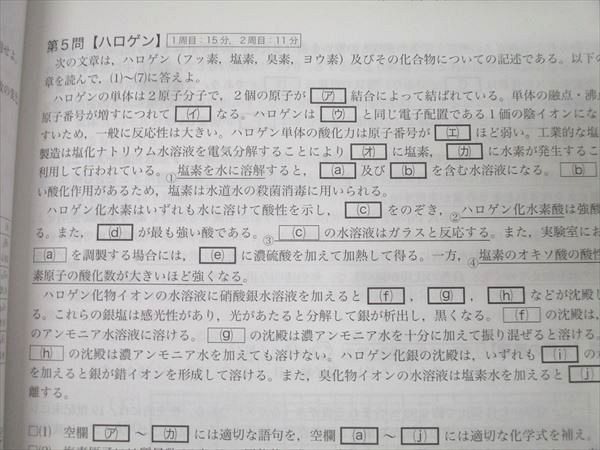 第5問【ハロゲン】 1周目:15分,2周目:11分
次の文章は,ハロゲン(フッ素,塩素,臭素,ヨウ素)及びその化合物についての記述である。以下の
章を読んで,(1)〜(7)に答えよ。
ハロゲンの単体は2原子分子で,2個の原子が(ア)結合によって結ばれている。単体の融点・沸
原子番号が増すにつれて(イ)なる。ハロゲンは(ウ)と同じ電子配置である1価の陰イオンにな
すいため,一般に反応性は大きい。ハロゲン単体の酸化力は原子番号が(エ)ほど弱い。工業的な塩
製造は塩化ナトリウム水溶液を電気分解することにより(オ)に塩素,(カ)に水素が発生するこ
利用して行われている。①塩素を水に溶解すると,(a)及び(b)を含む水溶液になる。(b)
い酸化作用があるため,塩素は水道水の殺菌消毒に用いられる。
ハロゲン化水素はいずれも水に溶けて酸性を示し,(c)をのぞき,②ハロゲン化水素酸は強酸
る。また,(d)が最も強い酸である。③(c)の水溶液はガラスと反応する。また,実験室にお
(a)を調製する場合には,(e)に濃硫酸を加えて加熱して得る。一方,④塩素のオキソ酸の酸性
素原子の酸化数が大きいほど強くなる。
ハロゲン化物イオンの水溶液に硝酸銀水溶液を加えると(f),(g),(h)などが沈殿し
る。これらの銀塩は感光性があり,光があたると分解して銀が析出し,黒くなる。(f)の沈殿は,
のアンモニア水溶液に溶ける。(g)の沈殿は濃アンモニア水を十分に加えて振り混ぜると溶ける。
(h)の沈殿は濃アンモニア水を加えても溶けない。ハロゲン化銀の沈殿は,いずれも(i)の
を加えると銀が錯イオンを形成して溶ける。また,臭化物イオンの水溶液は塩素水を加えると(j)
離する。
□(1) 空欄(ア)〜(カ)には適切な語句を,空欄(a)〜(j)には適切な化学式を補え。